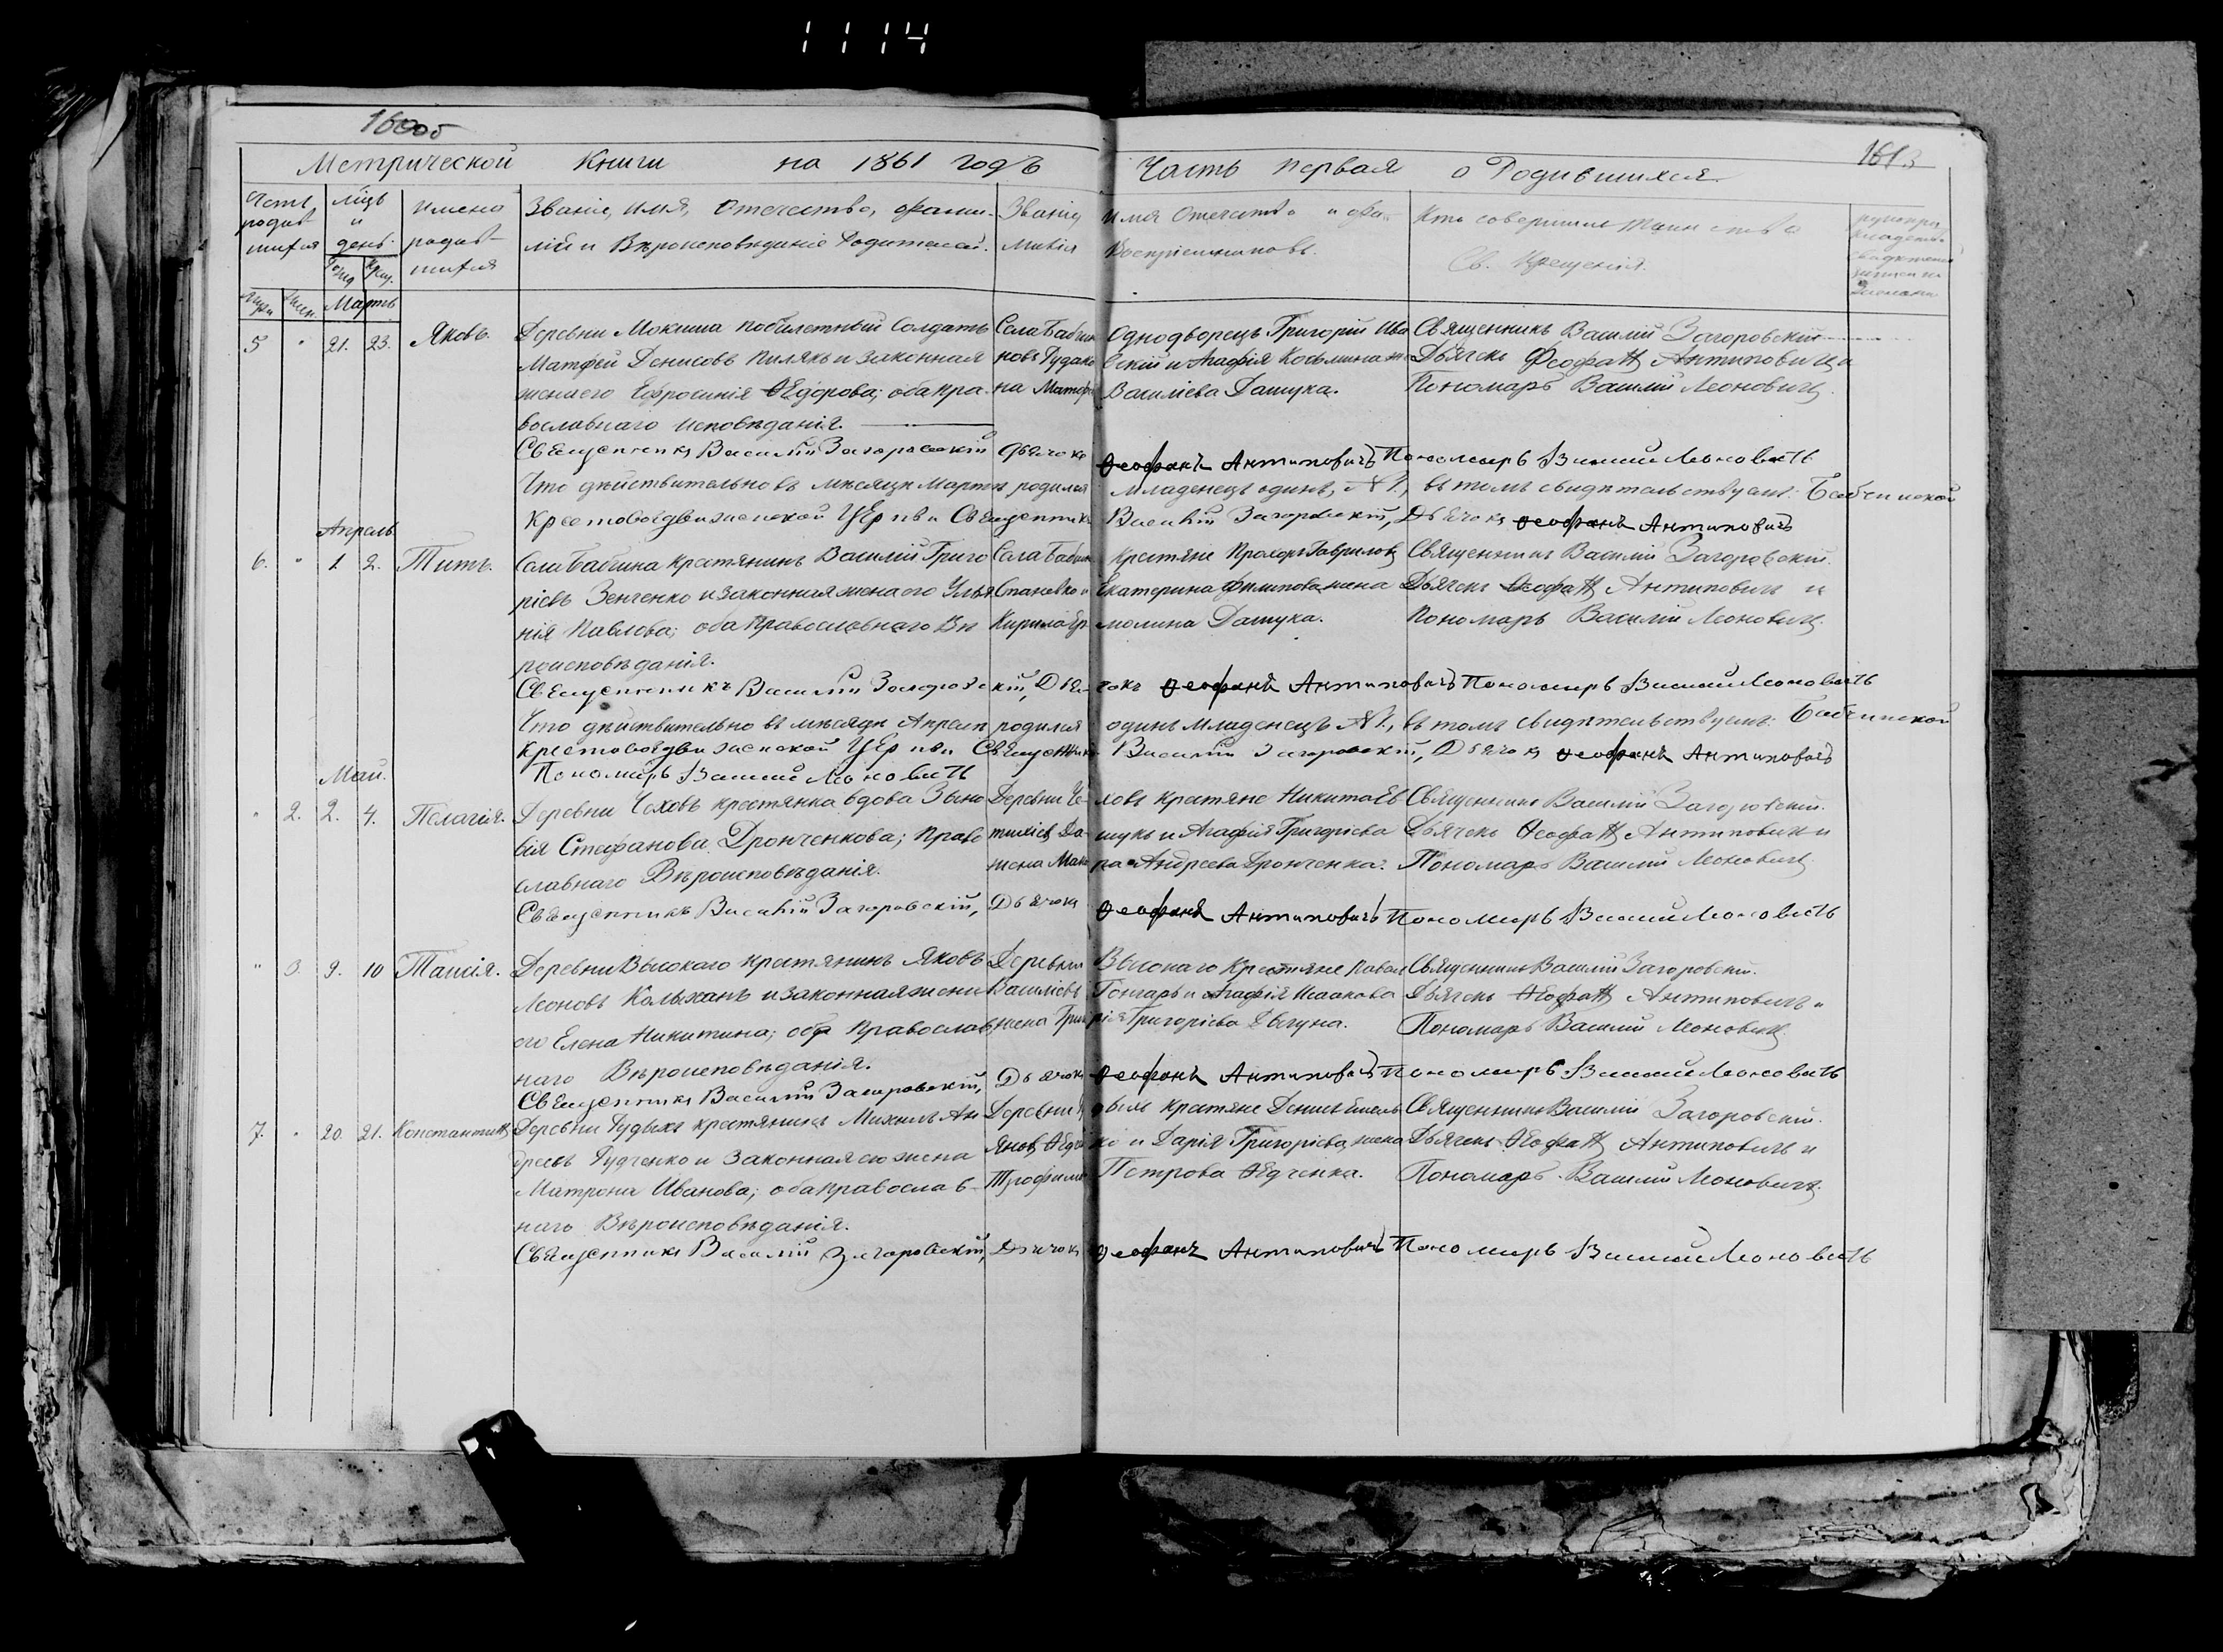 1114
160об
161
Метрической Книги на 1861 годъ
Часть первая о Родившихся.
Счетъ родив-шихся
мѣсяцъ и день.
Имена родив-шихся
Званіе, имя, Отечество, фами-
лія и Вѣроисповѣданіе Родителей.
Званіе,
Имя Отечество и фа-
Воспріемниковъ.
Кто совершилъ таинство
Св. Крещенія.
Мартъ
5 " 21. 23. Яковъ.
Деревни Мокиша побилетный Солдатъ
Матфей Денисовъ Пилякъ и законная
жена его Ефросинія Ѳедорова; оба пра-
вославнаго исповѣданія.
Села Бабчин
Однодворецъ Григорій Ива
новъ Рудако
вскій и Агафія Косьмина же
на Матфе
Василіева Дашука.
Священникъ Василій Загоровскій
Дьячекъ Феофанъ Антиповичъ и
Пономарь Василій Леоновичъ.
Священникъ Василій Загоровскій Дьячокъ Ѳеофанъ Антиповичъ Пономарь Василій Леоновичъ
Что дѣйствительно въ мѣсяцѣ Мартѣ родился младенецъ одинъ, №1, въ томъ свидѣтельствуемъ: Бабчинской
Крестовоздвиженской Церкви Священникъ Василій Загоровскій, Дьячокъ Ѳеофанъ Антиповичъ
Апрель.
6. " 1. 2. Титъ.
Села Бабчина крестянинъ Василій Григо
ріевъ Зенченко и законная жена его Улья
нія Павлова; оба Православнаго Вѣ
роисповѣданія.
Села Бабчин
Крестяне Прохоръ Гавриловъ
Становко и
Екатерина Филипова жена
Кирила Ер
молина Дашука.
Священникъ Василій Загоровскій.
Дьячекъ Ѳеофанъ Антиповичъ и
Пономарь Василій Леоновичъ.
Священникъ Василій Загоровскій, Дьячокъ Ѳеофанъ Антиповичъ Пономарь Василій Леоновичъ
Что дѣйствительно въ мѣсяцѣ Апрелѣ родился одинъ младенецъ №1, въ томъ свидѣтельствуемъ: Бабчинской
Крестовоздвиженской Церкви Священникъ Василій Загоровскій, Дьячокъ Ѳеофанъ Антиповичъ
Пономарь Василій Леоновичъ
Май.
" 2. 2. 4. Пелагія.
Деревни Чеховъ крестянка вдова Зѣно
вія Стефанова Дронченкова; Право
славнаго Вѣроисповѣданія.
Деревни Че
ховъ крестяне Никита Ев
тихіевъ Да-
шукъ и Агафія Григоріева
жена Мака
ра Андреева Дронченка.
Священникъ Василій Загоровскій.
Дьячекъ Ѳеофанъ Антиповичъ и
Пономарь Василій Леоновичъ.
Священникъ Василій Загоровскій, Дьячокъ Ѳеофанъ Антиповичъ Пономарь Василій Леоновичъ
" 3. 9. 10 Таисія.
Деревни Высокаго крестянинъ Яковъ
Леоновъ Колыханъ и законная жена
его Елена Никитина; оба Православ
наго Вѣроисповѣданія.
Деревни
Высокаго Крестяне Павел
Василіевъ
Гончаръ и Агафія Исаакова
жена Григо
рія Григоріева
Священникъ Василій Загоровскій.
Дьячекъ Ѳеофанъ Антиповичъ и
Пономарь Василій Леоновичъ.
Священникъ Василій Загоровскій, Дьячокъ Ѳеофанъ Антиповичъ Пономарь Василій Леоновичъ
7. " 20. 21. Константинъ
Деревни Рудыхъ крестянинъ Михаилъ Ан-
дреевъ Рудченко и Законная его жена
Матрона Иванова; оба православ-
наго Вѣроисповѣданія.
Деревни
крестяне Денисъ
и Дарія Григоріева жена
Трофима
Петрова Ѳедченка.
Священникъ Василій Загоровскій.
Дьячекъ Ѳеофанъ Антиповичъ и
Пономарь Василій Леоновичъ.
Священникъ Василій Загоровскій, Дьячокъ Ѳеофанъ Антиповичъ Пономарь Василій Леоновичъ